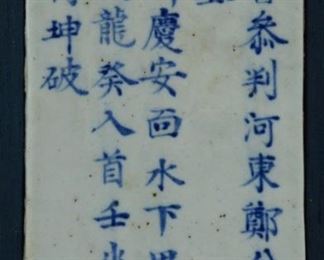 叅判河東鄭公
慶安面水下里
龍癸入首壬坐
坤破